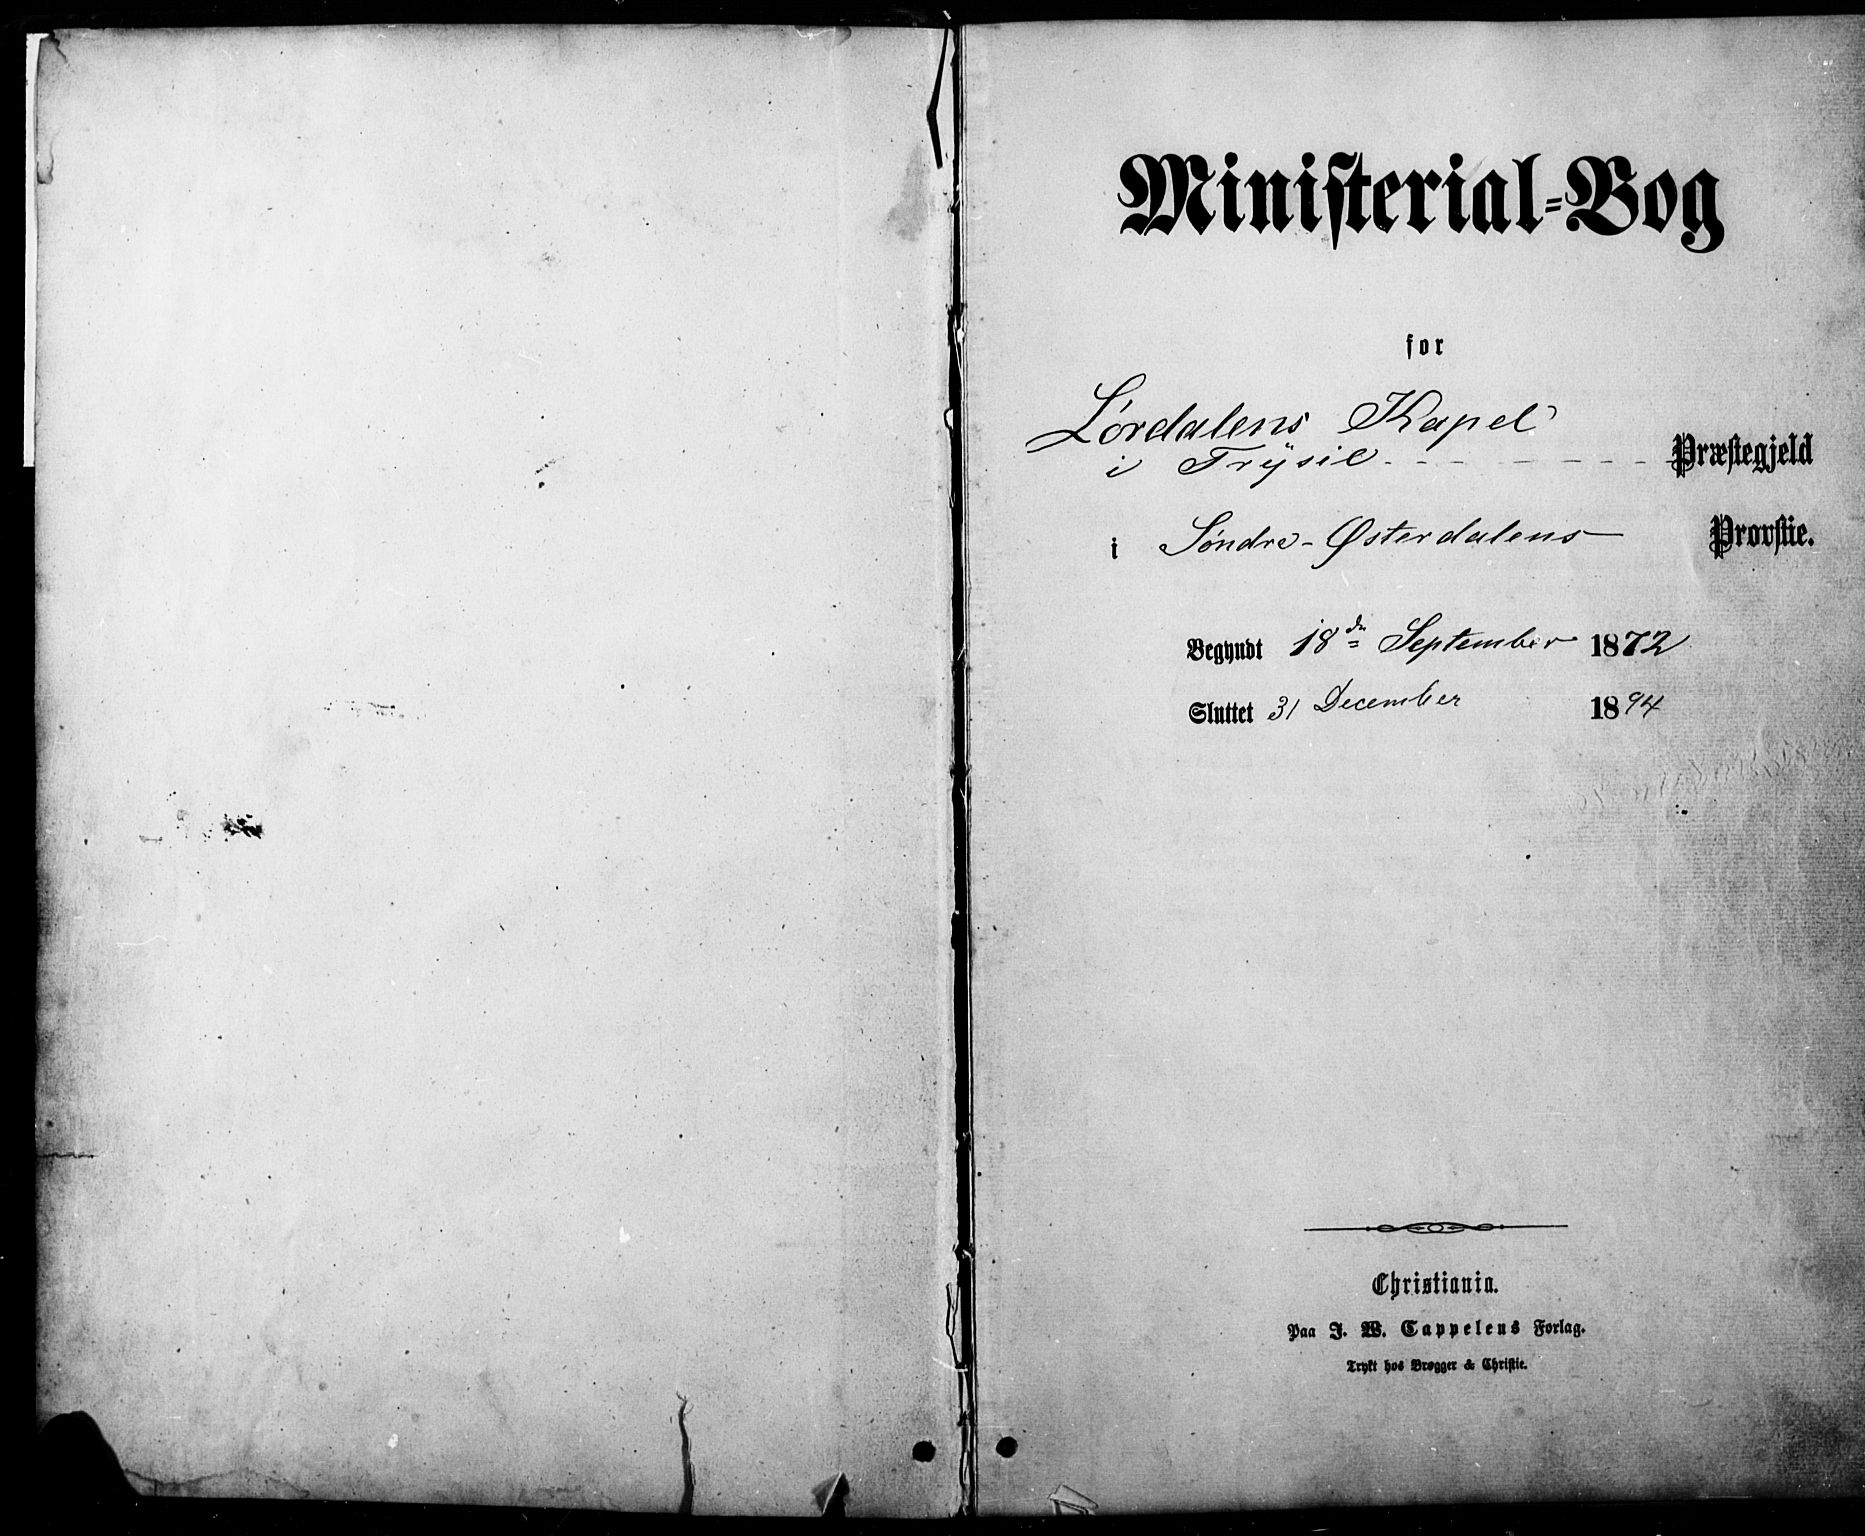 Ministerial-Bog
for
Lørdalens Kapel
i Trÿsil Præstegjeld
i Søndre-Østerdalens Provstie.
Begyndt 18de September 1872
Sluttet 31 December 1894
Christiania.
Paa J. W. Cappelens Forlag.
Trykt hos Brøgger & Christie.